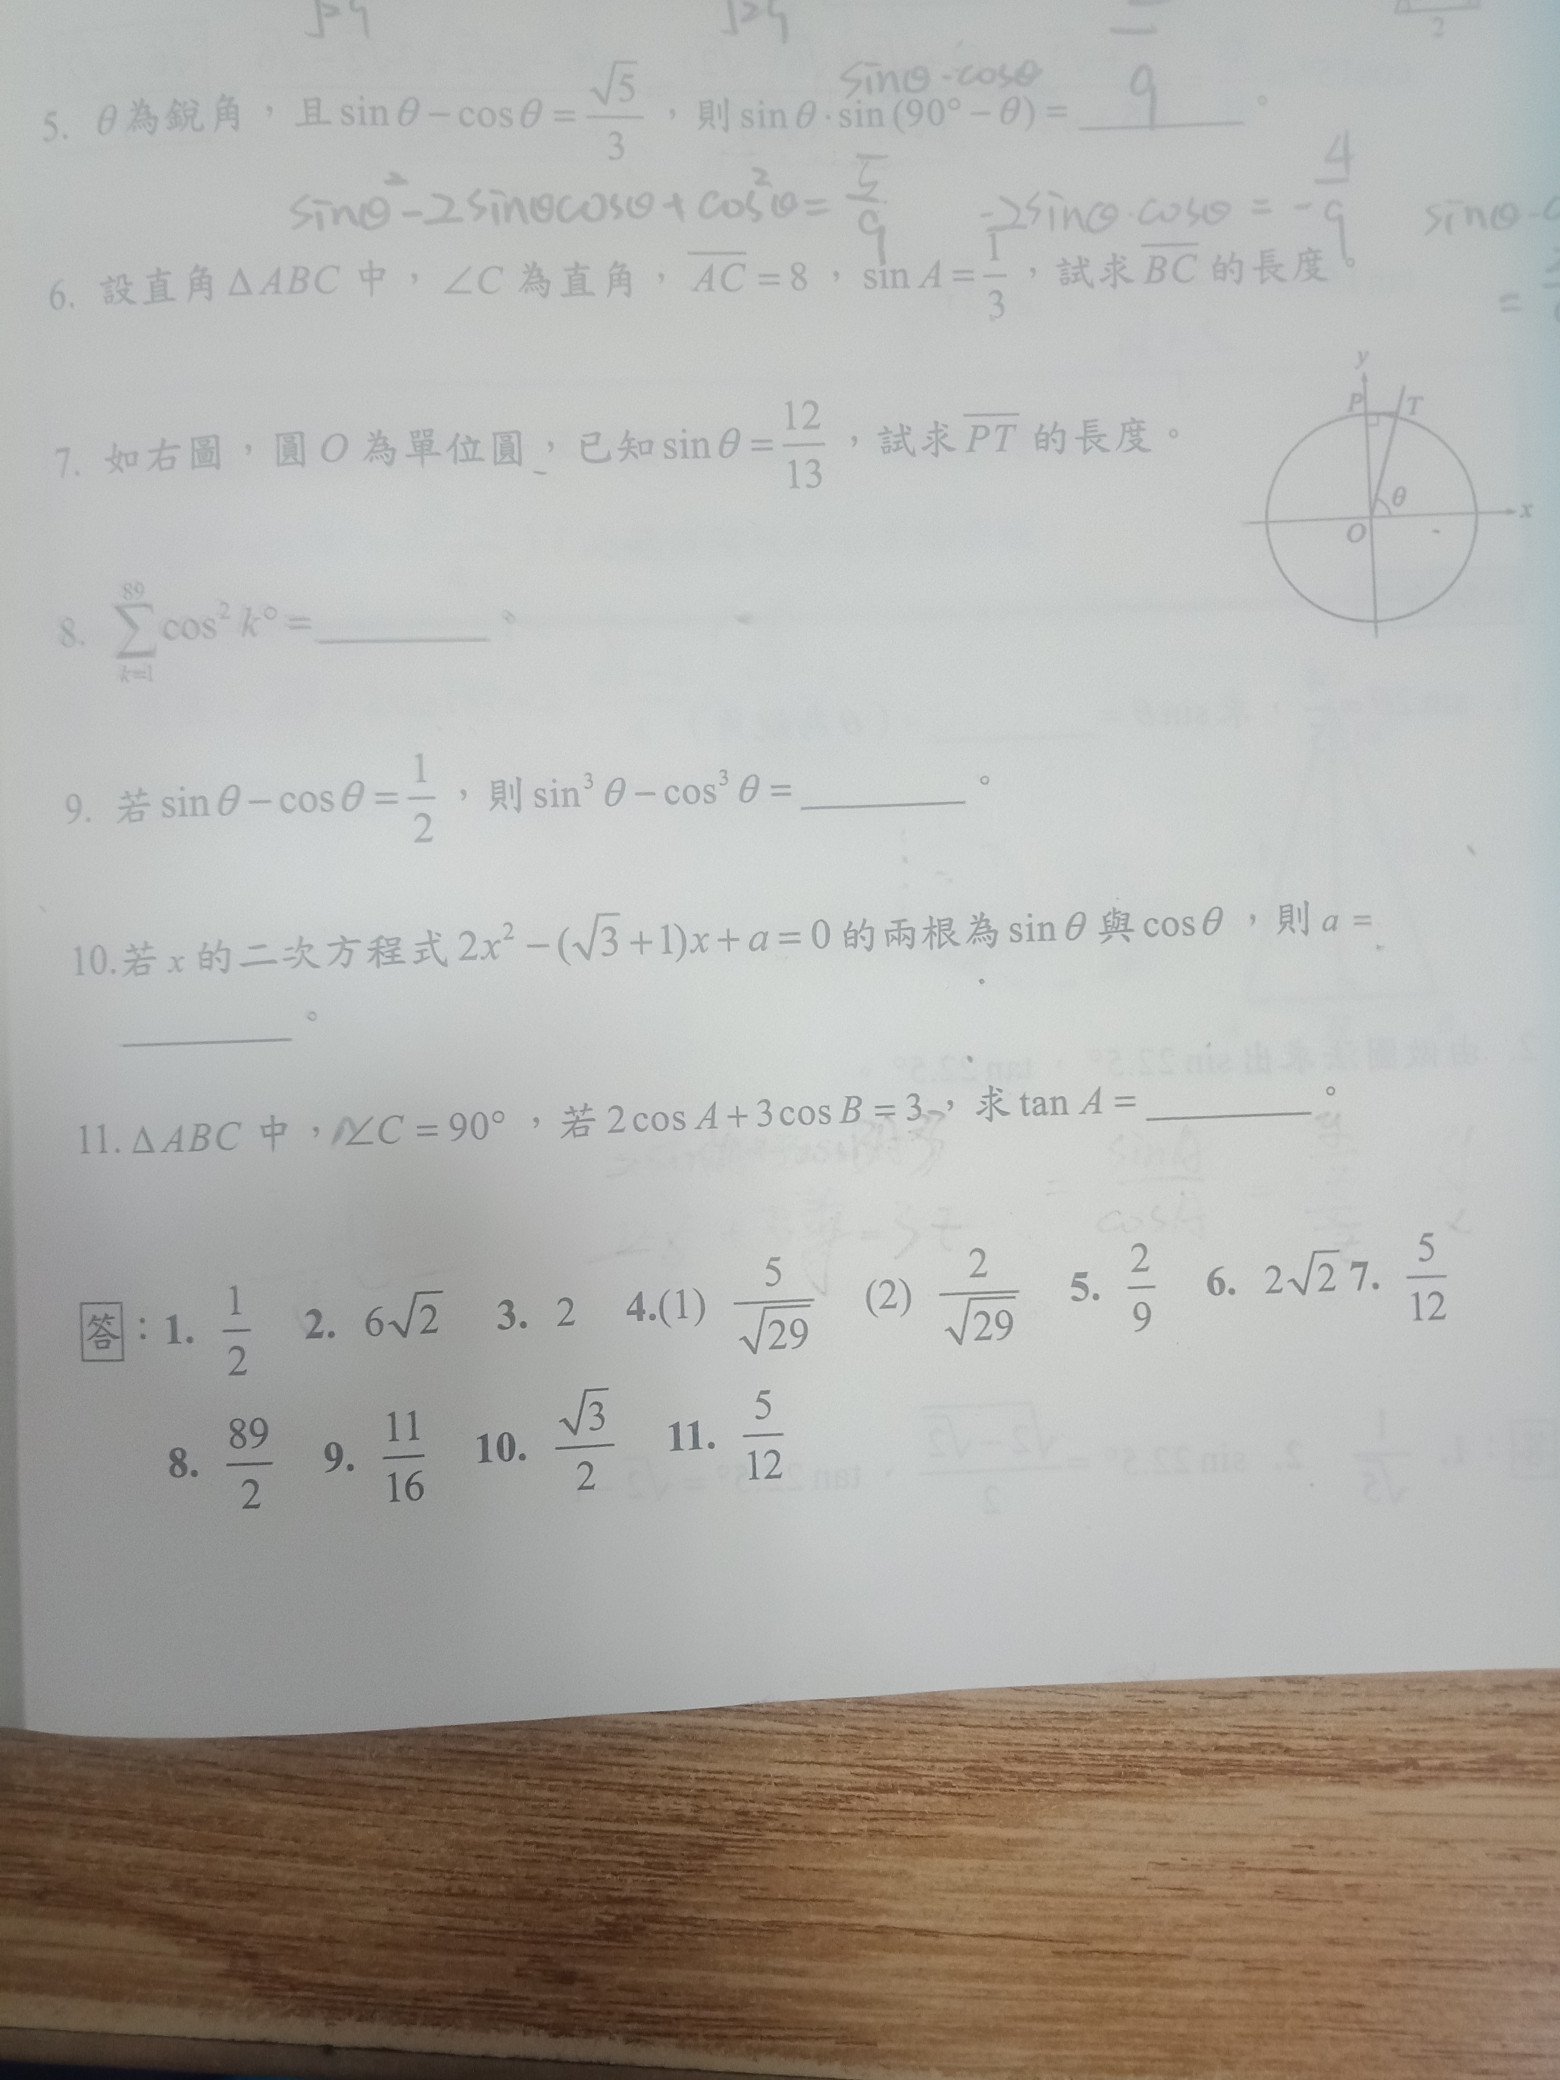 sinθ·cosθ
5. θ為銳角，且 sinθ－cosθ＝√5/3，則 sinθ·sin(90°－θ)＝ 9 。
sinθ²－2sinθcosθ＋cos²θ＝5/9 －2sinθ·cosθ＝－4/9 sinθ·
6. 設直角 ΔABC 中，∠C 為直角，AC＝8，sin A＝1/3，試求 BC 的長度。 ＝
7. 如右圖，圓 O 為單位圓，已知 sinθ＝12/13，試求 PT 的長度。
y
P T
θ
O x
2
8. ∑_{k=1}^{89} cos² k°＝________。
9. 若 sinθ－cosθ＝1/2，則 sin³θ－cos³θ＝________。
10.若 x 的二次方程式 2x²－(√3＋1)x＋a＝0 的兩根為 sinθ 與 cosθ，則 a＝
________。
11. ΔABC 中，∠C＝90°，若 2cos A＋3cos B＝3，求 tan A＝________。
答：1. 1/2 2. 6√2 3. 2 4.(1) 5/√29 (2) 2/√29 5. 2/9 6. 2√2 7. 5/12
8. 89/2 9. 11/16 10. √3/2 11. 5/12